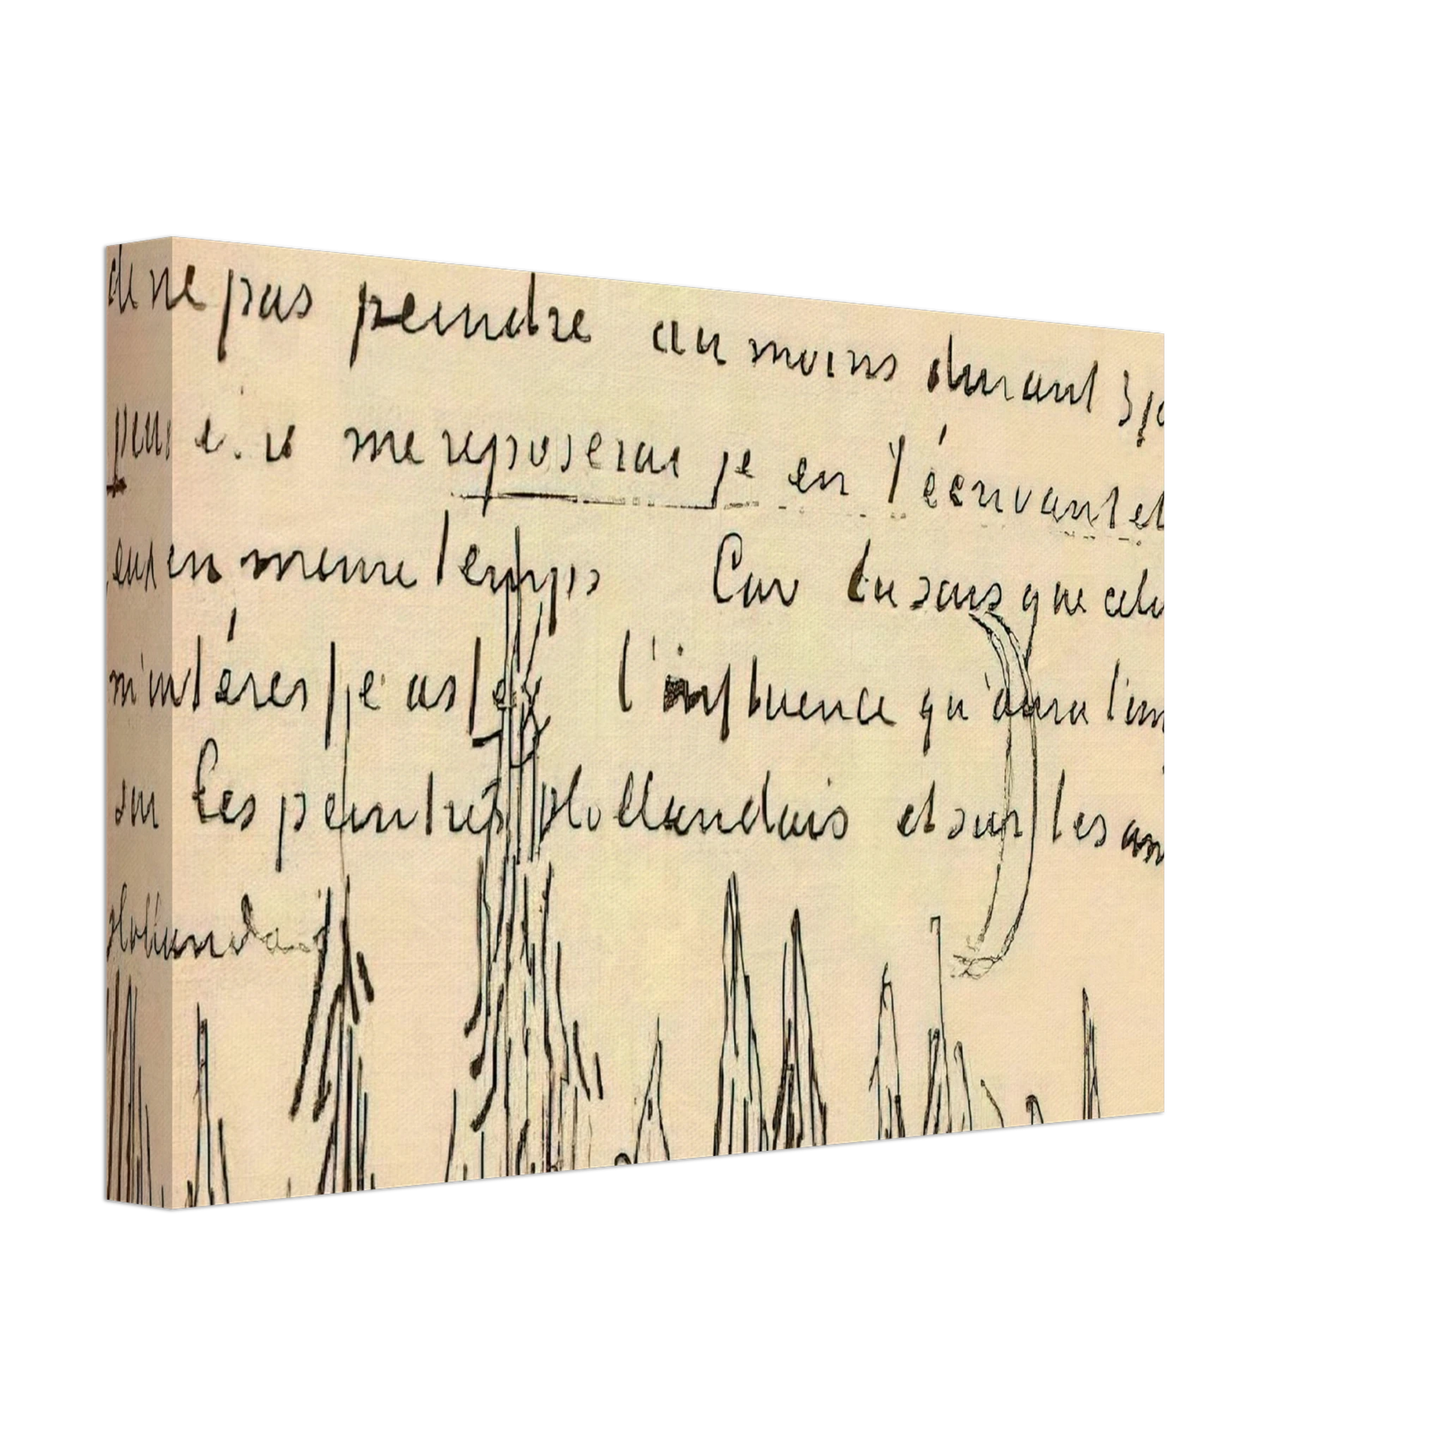 de ne pas peindre au moins durant 3 jo
peut me reposerai je en t'écrivant et
en meme temps Car tu sais que cela
m'intéresse l'influence qu'aura l'im
sur les peintres Hollandais et sur les am
Hollandais